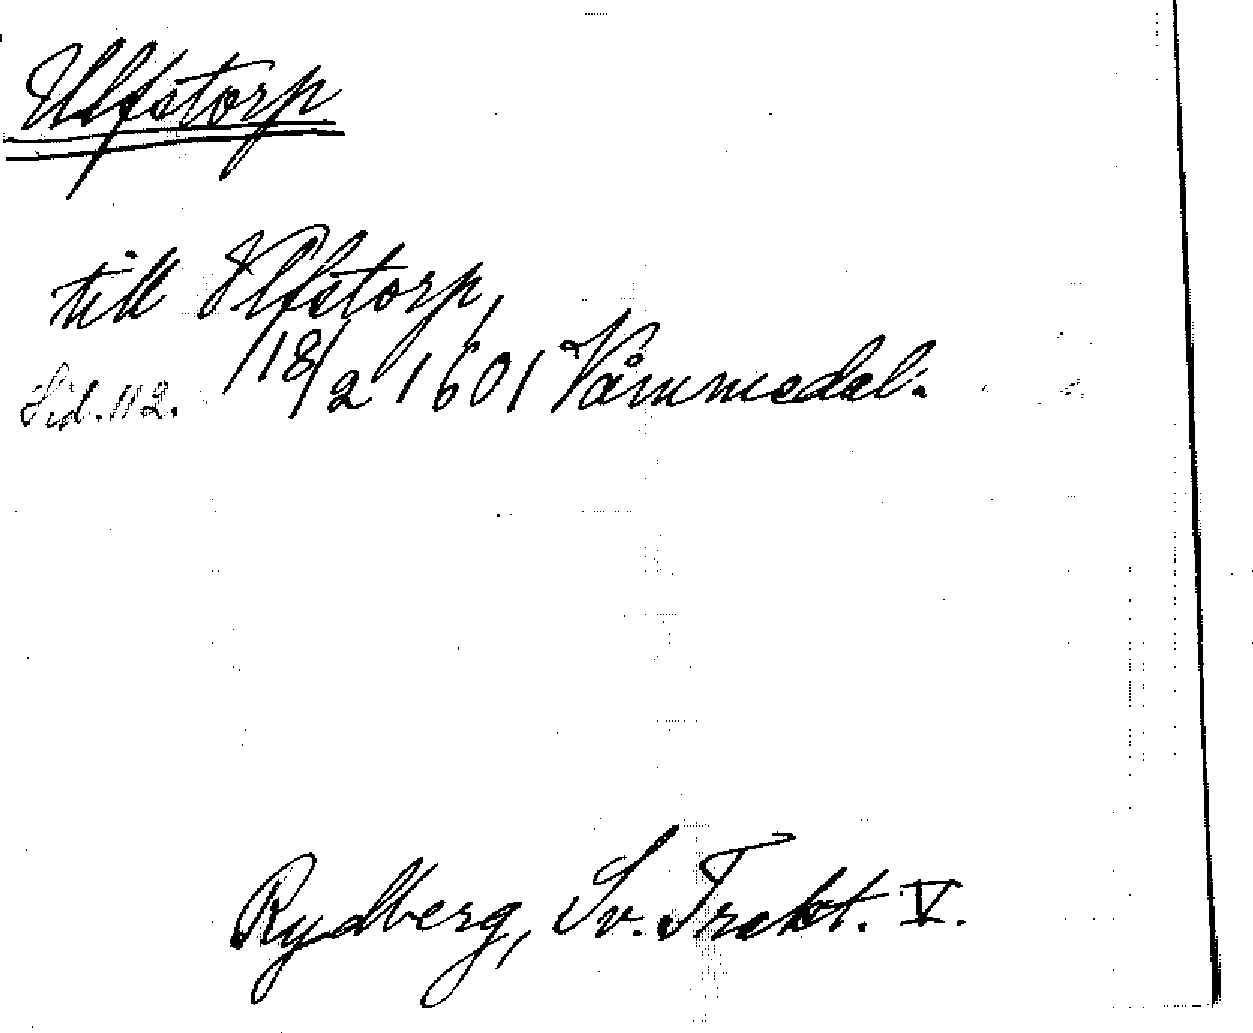 Ulfstorp
till Ulfstorp,
Sid. 112. 18/2 1601 Våmmedal.
Rydberg, Sv. Trakt. V.